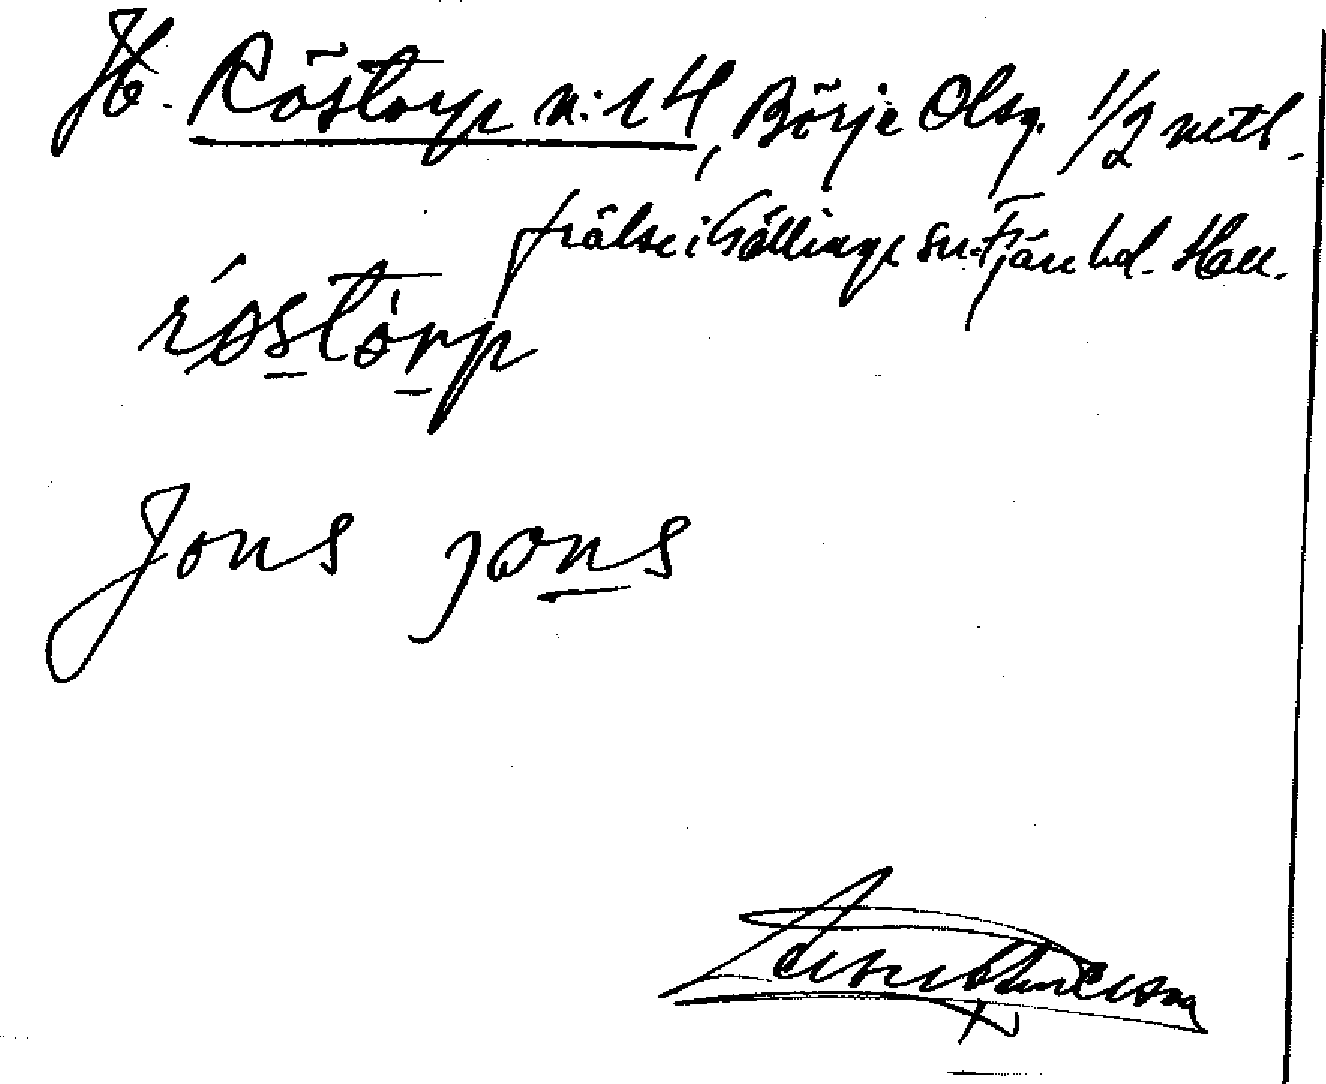 Hb. Röstorp n:r 4, Börje Olsg. 1/2 mtl.
frälse i Gällinge sn. Fjäre hd. Hall.
röstórp
Jöns jöns